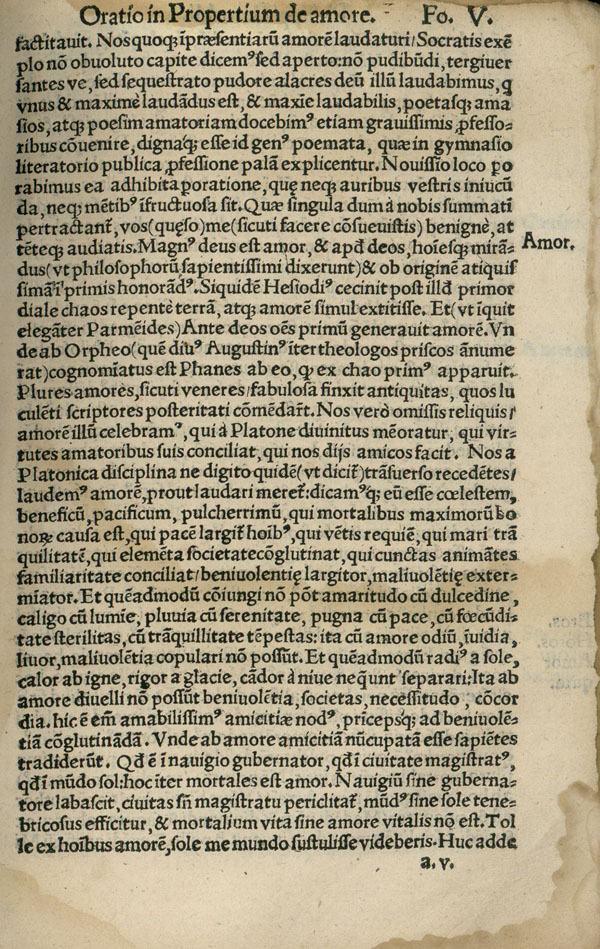 Oratio in Propertium de amore. Fo. V.
factitauit. Nos quoqꝫ ĩpræsentiarũ amorẽ laudaturi/Socratis exẽ
plo nõ obuoluto capite dicemꝰ sed aperto: nõ pudibũdi, tergiuer
santes ve, sed sequestrato pudore alacres deũ illũ laudabimus, q
vnus & maximè laudãdus est, & maxĩe laudabilis, poetasqꝫ ama
sios, atqꝫ poesim amatoriam docebimꝰ etiam grauissimis ꝓfesso-
ribus cõuenire, dignaqꝫ esse id genꝰ poemata, quæ in gymnasio
literatorio publica ꝓfessione palã explicentur. Nouissĩo loco po
rabimus ea adhibita poratione, quę neqꝫ auribus vestris iniucũ
da, neqꝫ mẽtibꝰ ĩfructuosa sit. Quæ singula dum à nobis summatĩ
pertractant̃, vos (quęso) me (sicuti facere cõsueuistis) benignè, at
tẽteqꝫ audiatis. Magnꝰ deus est amor, & apđ deos, hoĩesqꝫ mirã-
Amor.
dus (vt philosophorũ sapientissimi dixerunt) & ob originẽ atiquis
simã ĩ primis honorãdꝰ. Siquidẽ Hesiodꝰ cecinit post illđ primor
diale chaos repentè terrã, atqꝫ amorẽ simul extitisse. Et (vt ĩquit
elegãter Parmẽides) Ante deos oẽs primũ generauit amorẽ. Vn
de ab Orpheo (quẽ diuꝰ Augustinꝰ ĩter theologos priscos ãnume
rat) cognomĩatus est Phanes ab eo, ꝙ ex chao primꝰ apparuit.
Plures amores, sicuti veneres/fabulosa finxit antiquitas, quos lu
culẽti scriptores posteritati cõmẽdar̃t. Nos verò omissis reliquis/
amorẽ illũ celebramꝰ, qui à Platone diuinitus mẽoratur, qui vir-
tutes amatoribus suis conciliat, qui nos dijs amicos facit. Nos a
Platonica disciplina ne digito quidẽ (vt dicit̃) trãsuerso recedẽtes/
laudemꝰ amorẽ, prout laudari meret̃: dicamꝰqꝫ eũ esse cœlestem,
beneficũ, pacificum, pulcherrimũ, qui mortalibus maximorũ bo
norꝝ causa est, qui pacẽ largit̃ hoĩbꝰ, qui vẽtis requiẽ, qui mari trã
quilitatẽ, qui elemẽta societate cõglutinat, qui cunctas animãtes
familiaritate conciliat/beniuolentię largitor, maliuolẽtię exter-
mĩator. Et quẽadmodũ cõiungi nõ põt amaritudo cũ dulcedine,
caligo cũ lumĩe, pluuia cũ serenitate, pugna cũ pace, cũ fœcũdi-
tate sterilitas, cũ trãquillitate tẽpestas: ita cũ amore odiũ, ĩuidia,
liuor, maliuolẽtia copulari nõ possũt. Et quẽadmodũ radiꝰ a sole,
calor ab igne, rigor a glacie, cãdor à niue neq̃unt separari: Ita ab
amore diuelli nõ possũt beniuolẽtia, societas, necessitudo, cõcor
dia. hic ẽ em̃ amabilissimꝰ amicitiæ nodꝰ, pricepsqꝫ ad beniuolẽ-
tiã cõglutinãdã. Vnde ab amore amicitiã nũcupatã esse sapiẽtes
tradiderũt. Qđ ẽ ĩ nauigio gubernator, qđ ĩ ciuitate magistratꝰ,
qđ ĩ mũdo sol: hoc ĩter mortales est amor. Nauigiũ sine guberna-
tore labascit, ciuitas sñ magistratu periclitat̃, mũdꝰ sine sole tene-
bricosus efficitur, & mortalium vita sine amore vitalis nõ est. Tol
le ex hoĩbus amorẽ, sole me mundo sustulisse videberis. Huc adde
a. v.